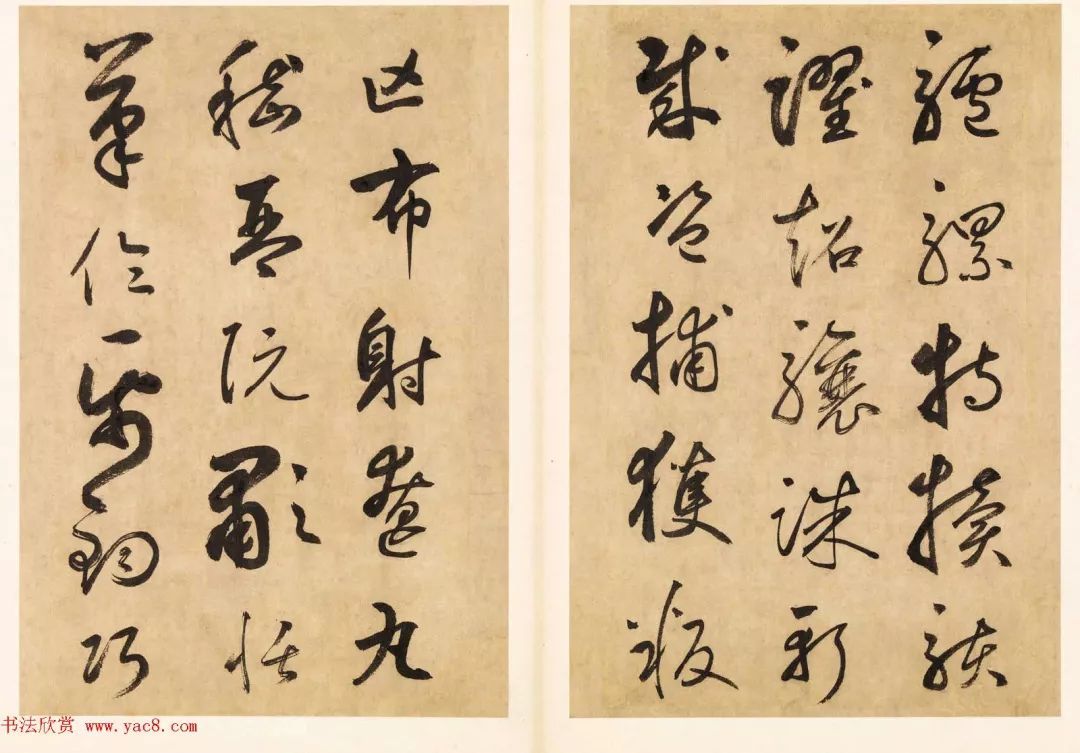 驢騾特犢駭
躍超驤誅斬
賊盜捕獲叛
亡布射遼丸
嵇琴阮歗恬
筆倫紙鈞巧
书法欣赏 www.yac8.com